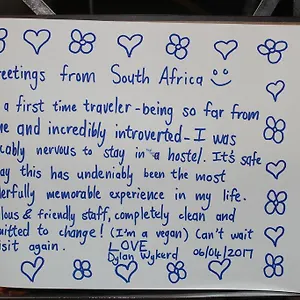 reetings from South Africa
a first time traveler - being so far from
me and incredibly introverted - I was
cably nervous to stay in a hostel. It's safe
ay this has undeniably been the most
derfully memorable experience in my life.
lous & friendly staff, completely clean and
mitted to change! (I'm a vegan) Can't wait
isit again.
LOVE
Dylan Wykerd 06/04/2017